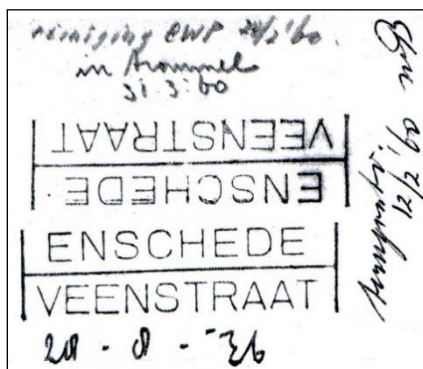 reiniging CWP 24/2 '60.
in trommel
31.3.60
VEENSTRAAT
ENSCHEDE
ENSCHEDE
VEENSTRAAT
12/2 '60